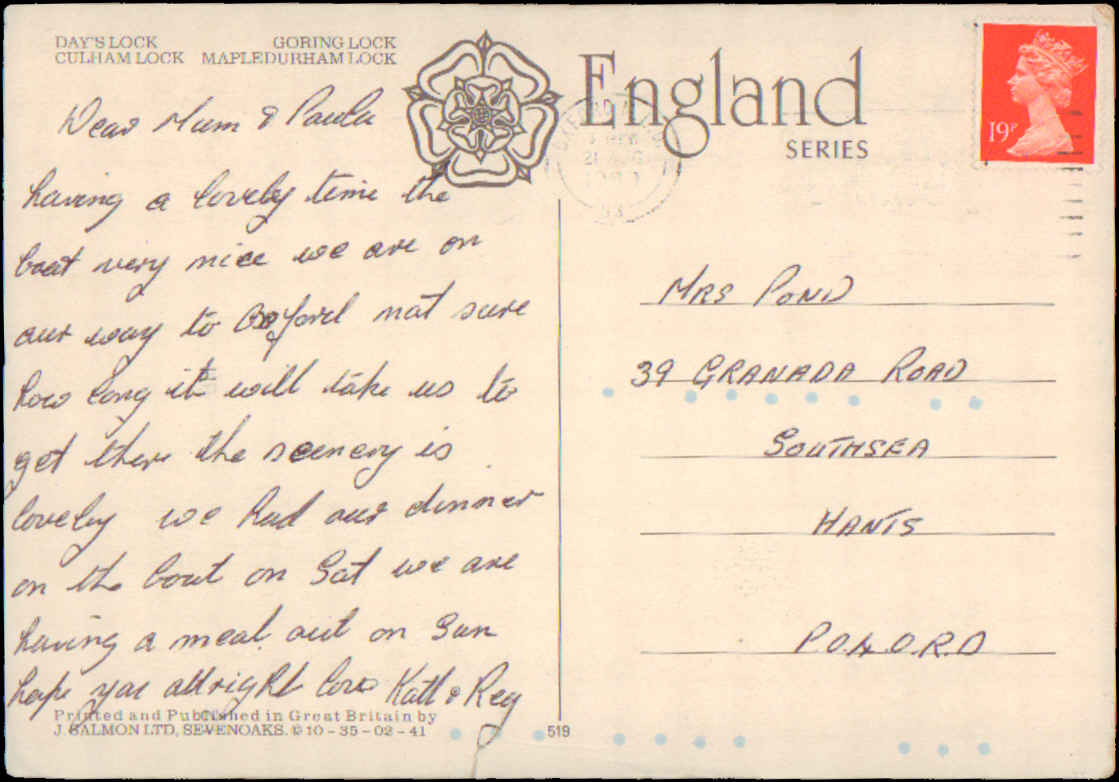 DAY'S LOCK GORING LOCK
CULHAM LOCK MAPLEDURHAM LOCK
England
SERIES
19P
21 AUG
Dear Mum & Paula
having a lovely time the
boat very nice we are on
our way to Oxford not sure
how long it will take us to
get there the scenery is
lovely we had our dinner
on the boat on Sat we are
having a meal out on Sun
hope you allright love Kath & Reg
MRS POND
39 GRANADA ROAD
SOUTHSEA
HANTS
P.O.4.O.R.D
Printed and Published in Great Britain by
J. SALMON LTD, SEVENOAKS. © 10 - 35 - 02 - 41
519